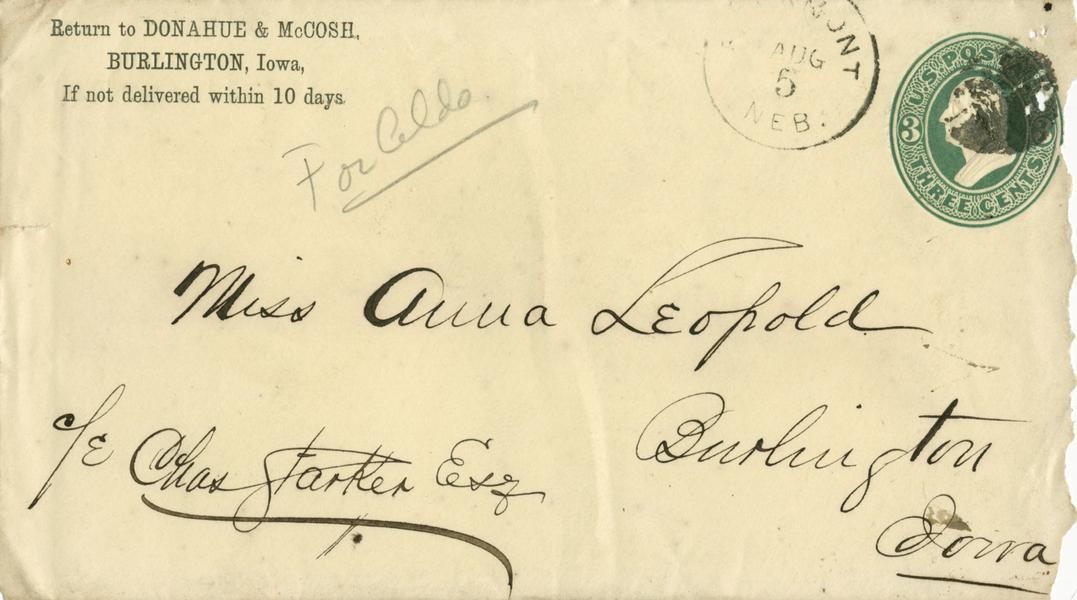 Return to DONAHUE & McCOSH,
BURLINGTON, Iowa,
If not delivered within 10 days.
MONT
AUG
5
NEB.
U.S. POS
3
THREE CENTS
For
Miss Anna Leopold
c/E Chas Starker Esq
Burlington
Iowa